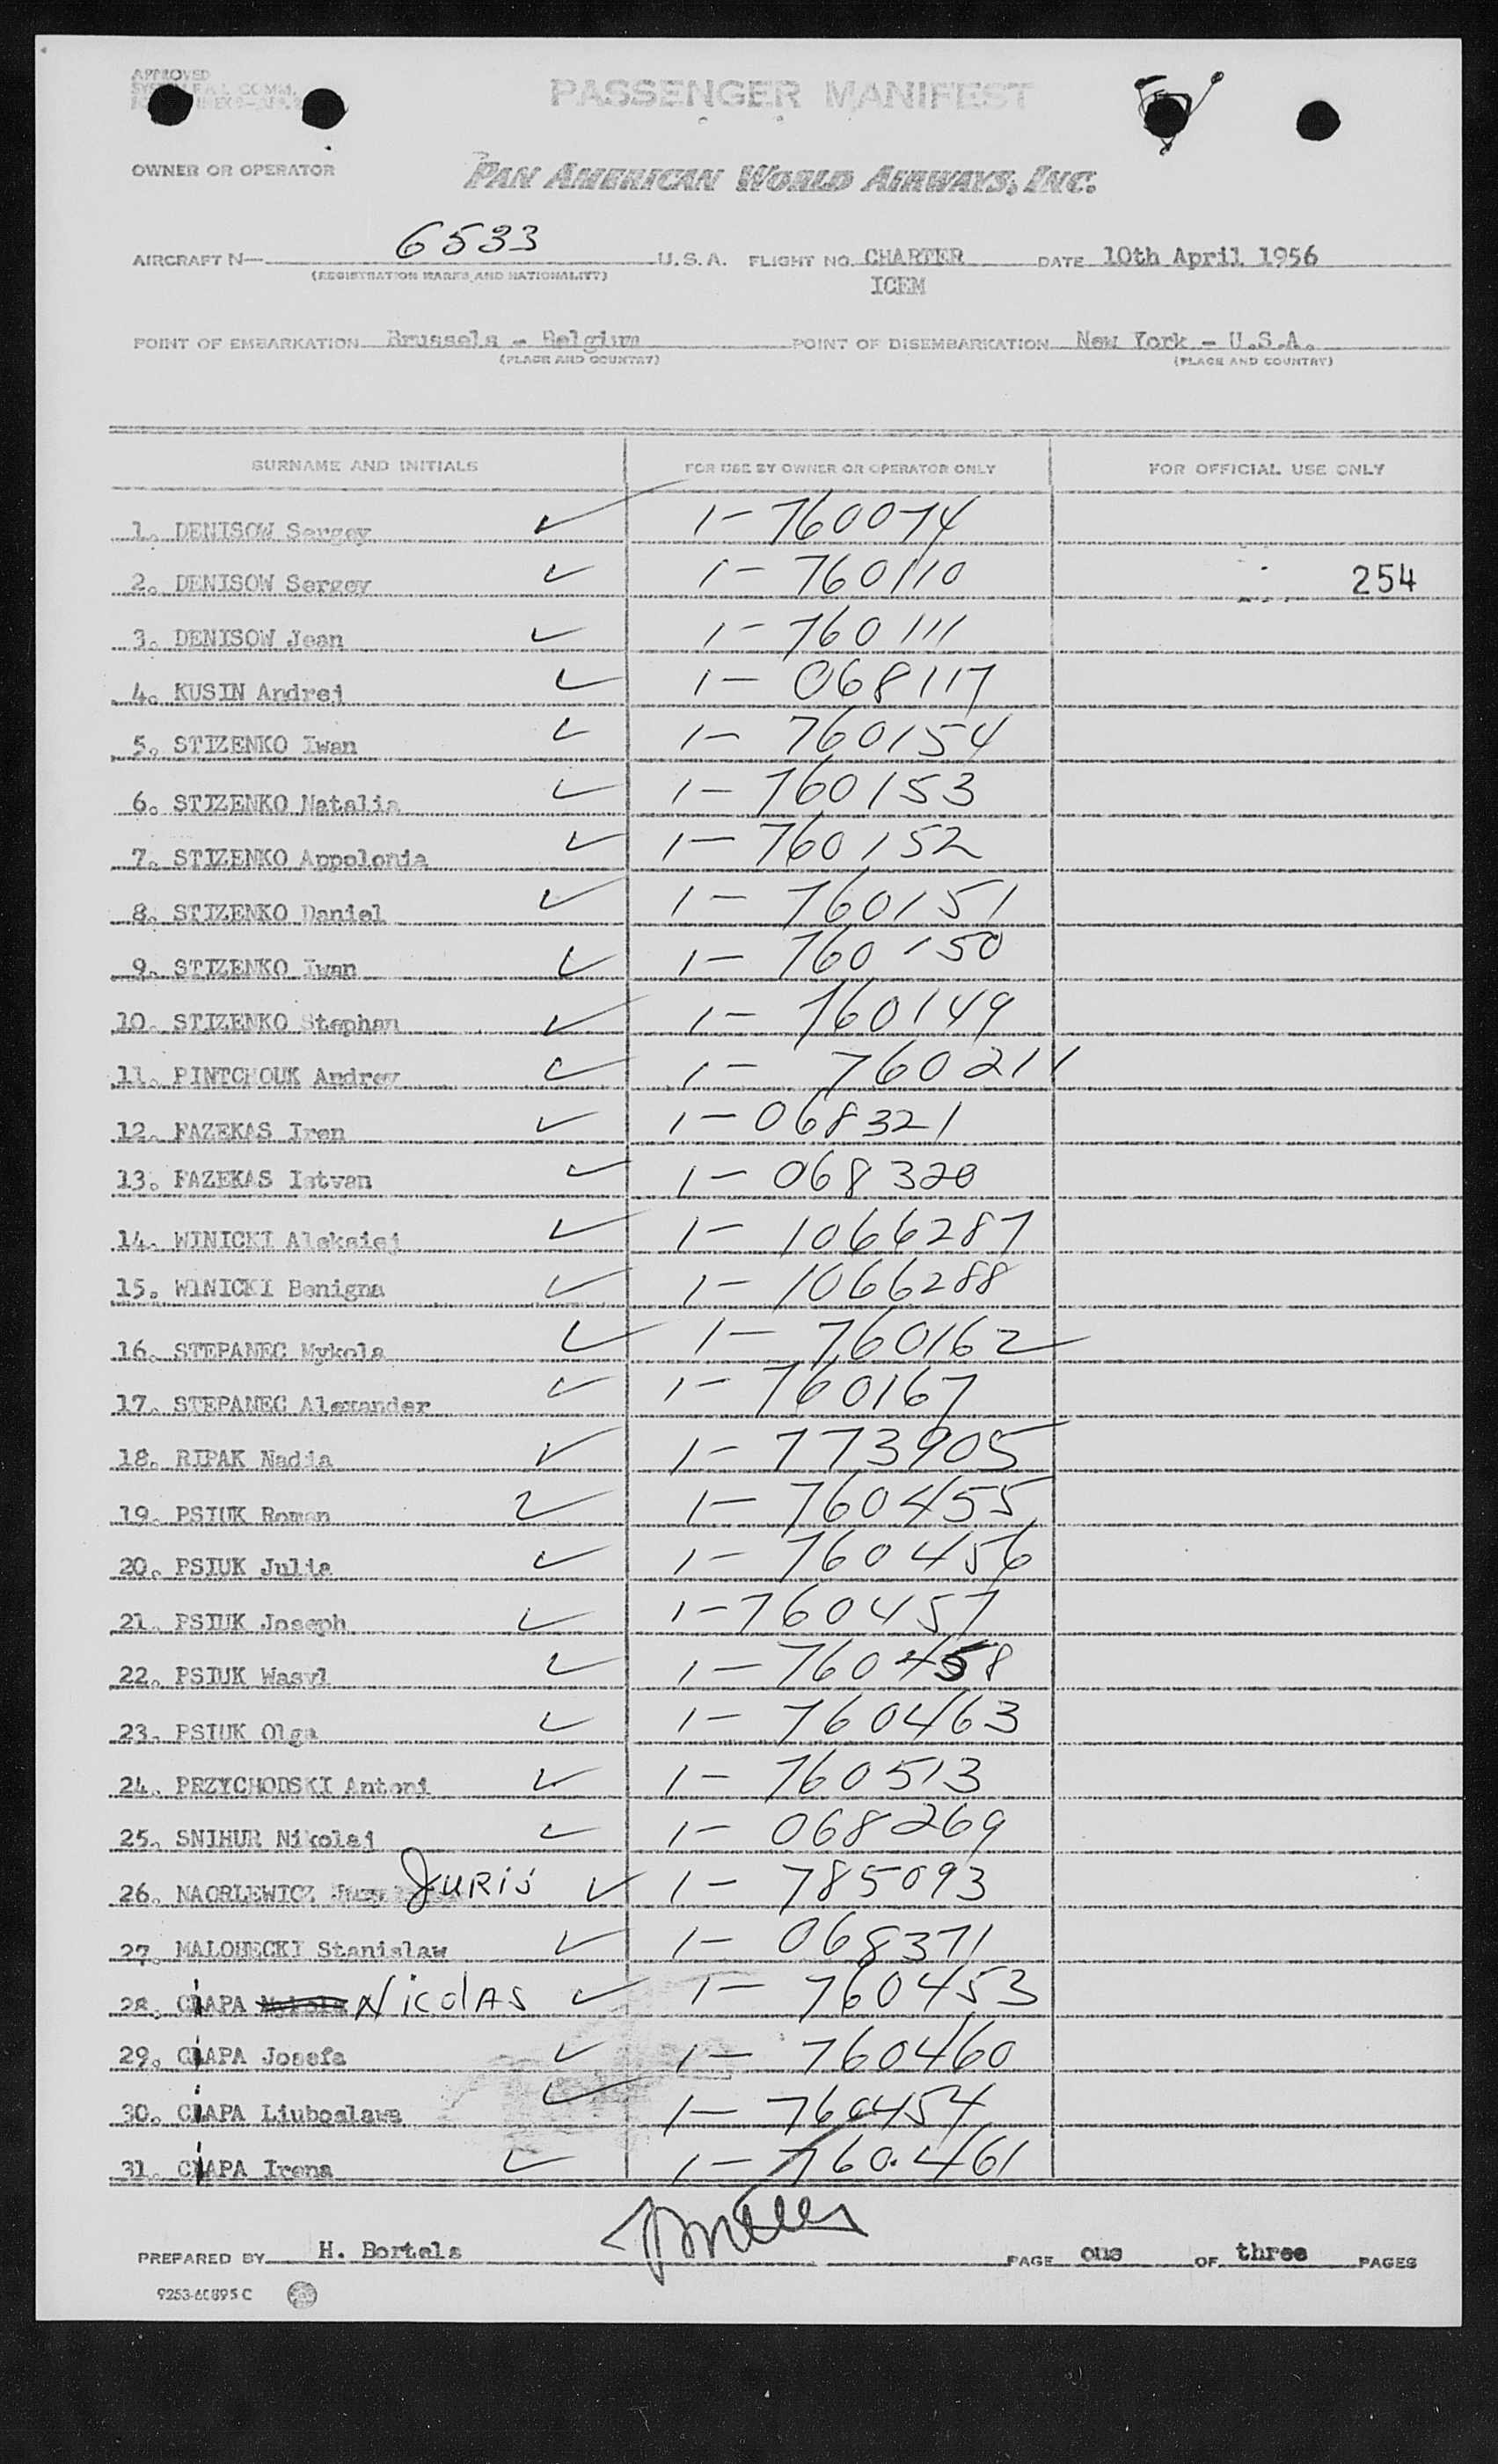 APPROVED
PASSENGER MANIFEST
OWNER OR OPERATOR PAN AMERICAN WORLD AIRWAYS, INC.
AIRCRAFT N— 6533 U.S.A. FLIGHT NO. CHARTER DATE 10th April 1956
(REGISTRATION MARKS AND NATIONALITY) ICEM
POINT OF EMBARKATION Brussels - Belgium POINT OF DISEMBARKATION New York - U.S.A.
(PLACE AND COUNTRY) (PLACE AND COUNTRY)
SURNAME AND INITIALS FOR USE BY OWNER OR OPERATOR ONLY FOR OFFICIAL USE ONLY
1. DENISOW Sergey ✓ 1-760074
2. DENISOW Sergey ✓ 1-760110 254
3. DENISOW Jean ✓ 1-760111
4. KUSIN Andrej ✓ 1-068117
5. STIZENKO Iwan ✓ 1-760154
6. STIZENKO Natalia ✓ 1-760153
7. STIZENKO Appolonia ✓ 1-760152
8. STIZENKO Daniel ✓ 1-760151
9. STIZENKO Iwan ✓ 1-760150
10. STIZENKO Stephan ✓ 1-760149
11. PINTCHOUK Andrey ✓ 1-760211
12. FAZEKAS Iren ✓ 1-068321
13. FAZEKAS Istvan ✓ 1-068320
14. WINICKI Aleksiej ✓ 1-1066287
15. WINICKI Benigna ✓ 1-1066288
16. STEPANEC Mykola ✓ 1-760162
17. STEPANEC Alexander ✓ 1-760167
18. RIPAK Nadia ✓ 1-773905
19. PSIUK Roman ✓ 1-760455
20. PSIUK Julia ✓ 1-760456
21. PSIUK Joseph ✓ 1-760457
22. PSIUK Wasyl ✓ 1-760458
23. PSIUK Olga ✓ 1-760463
24. PRZYCHODSKI Antoni ✓ 1-760513
25. SNIHUR Nikolaj ✓ 1-068269
26. NAORLEWICZ JURIJ ✓ 1-785093
27. MALOBECKI Stanislaw ✓ 1-068371
28. CIAPA NicolAS ✓ 1-760453
29. CIAPA Josefa ✓ 1-760460
30. CIAPA Liuboslawa ✓ 1-760454
31. CIAPA Irena ✓ 1-760461
PREPARED BY H. Bortels PAGE one OF three PAGES
9253-60895 C